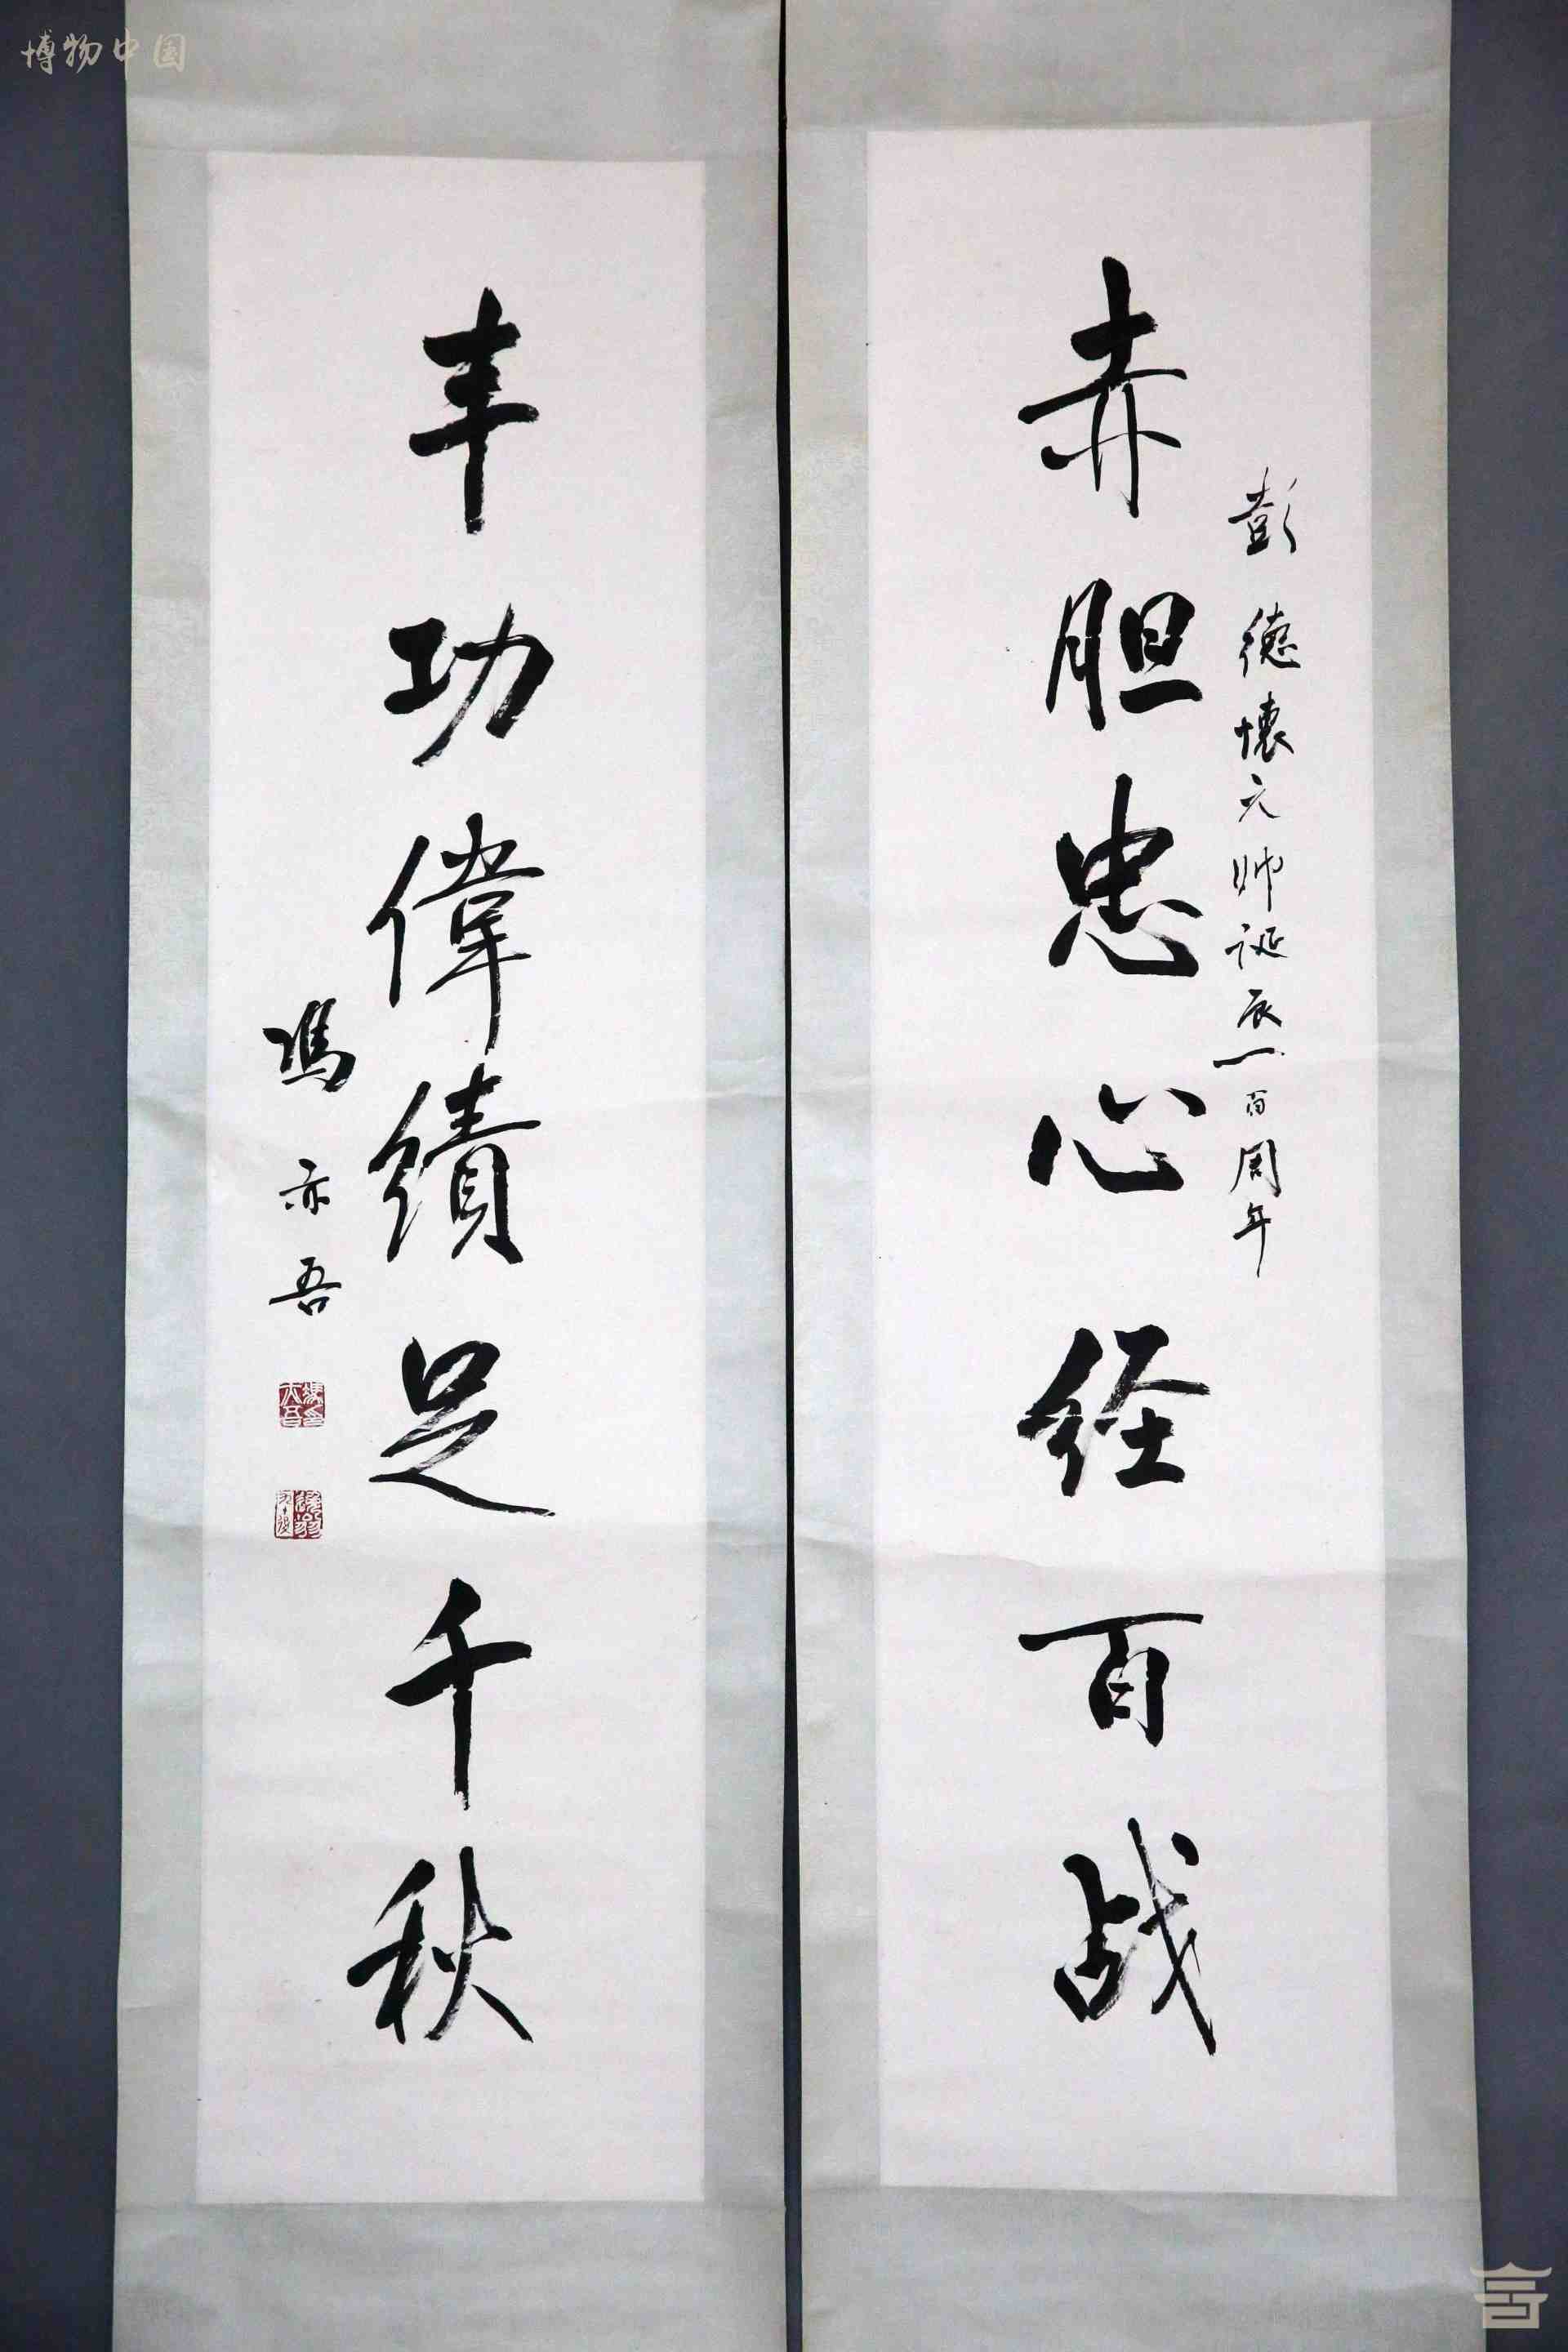 博物中国
彭德懷元帅诞辰一百周年
赤胆忠心经百战
丰功偉績足千秋
馮亦吾